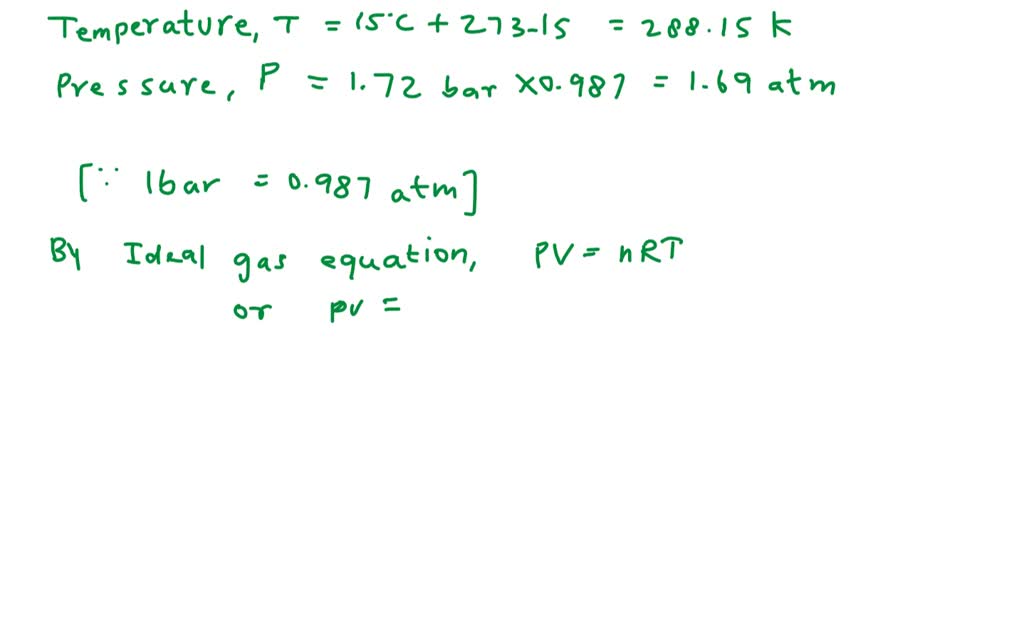 Temperature, T = 15°C + 273-15 = 288.15 k
Pressure, P = 1.72 bar ×0.987 = 1.69 atm
[∵ 1bar = 0.987 atm]
By Ideal gas equation, PV = nRT
or pv =